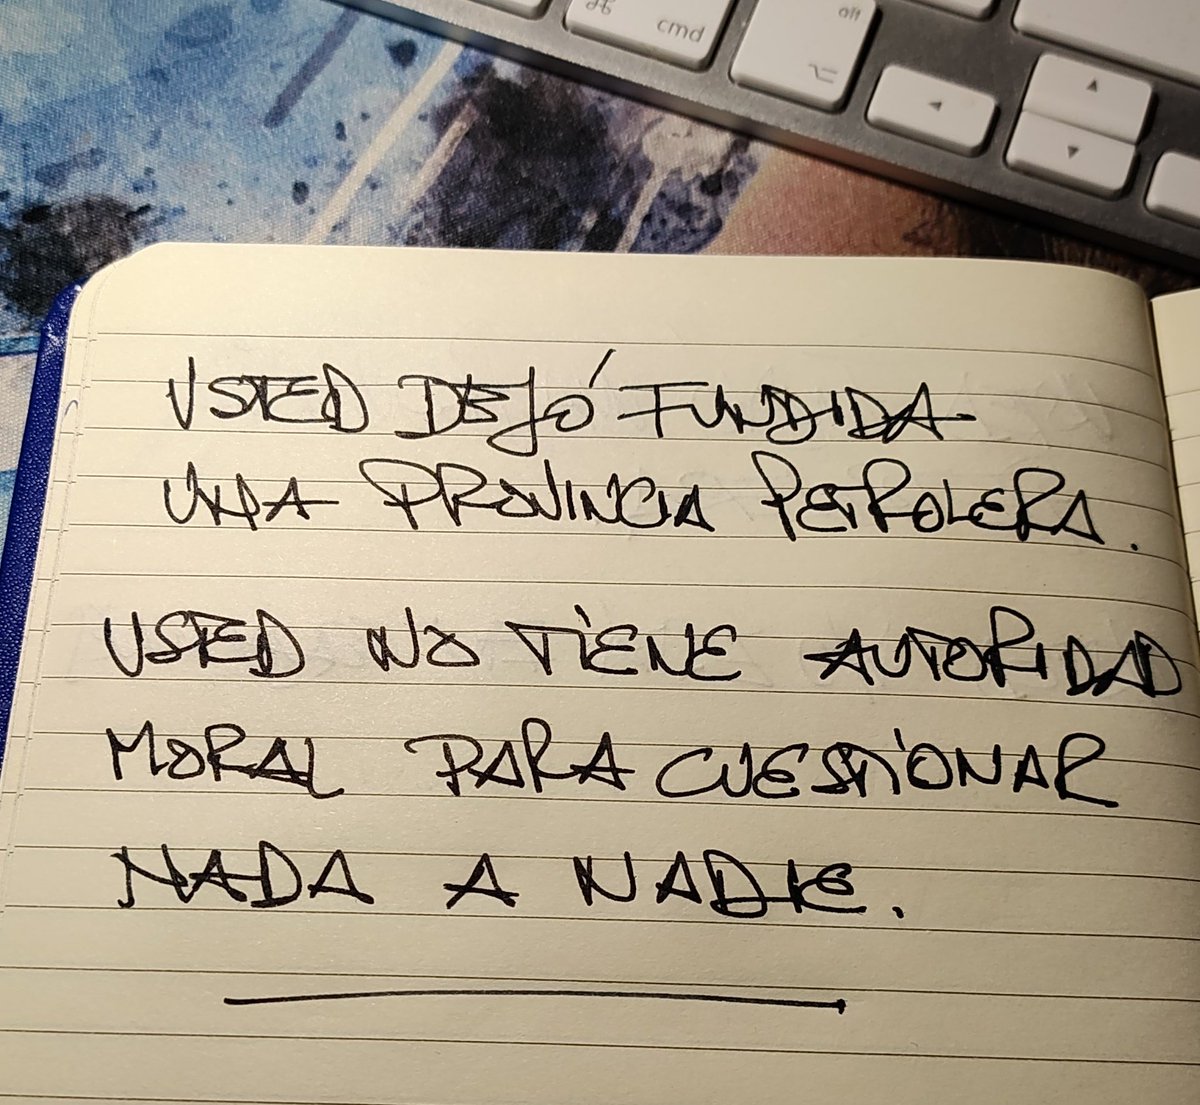 cmd
alt
USTED DEJÓ FUNDIDA
UNA PROVINCIA PETROLERA.
USTED NO TIENE AUTORIDAD
MORAL PARA CUESTIONAR
NADA A NADIE.